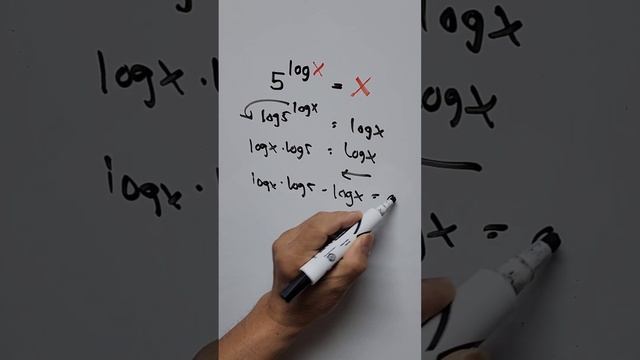 5^logx = x
log5^logx = logx
logx · log5 = logx
logx · log5 - logx =